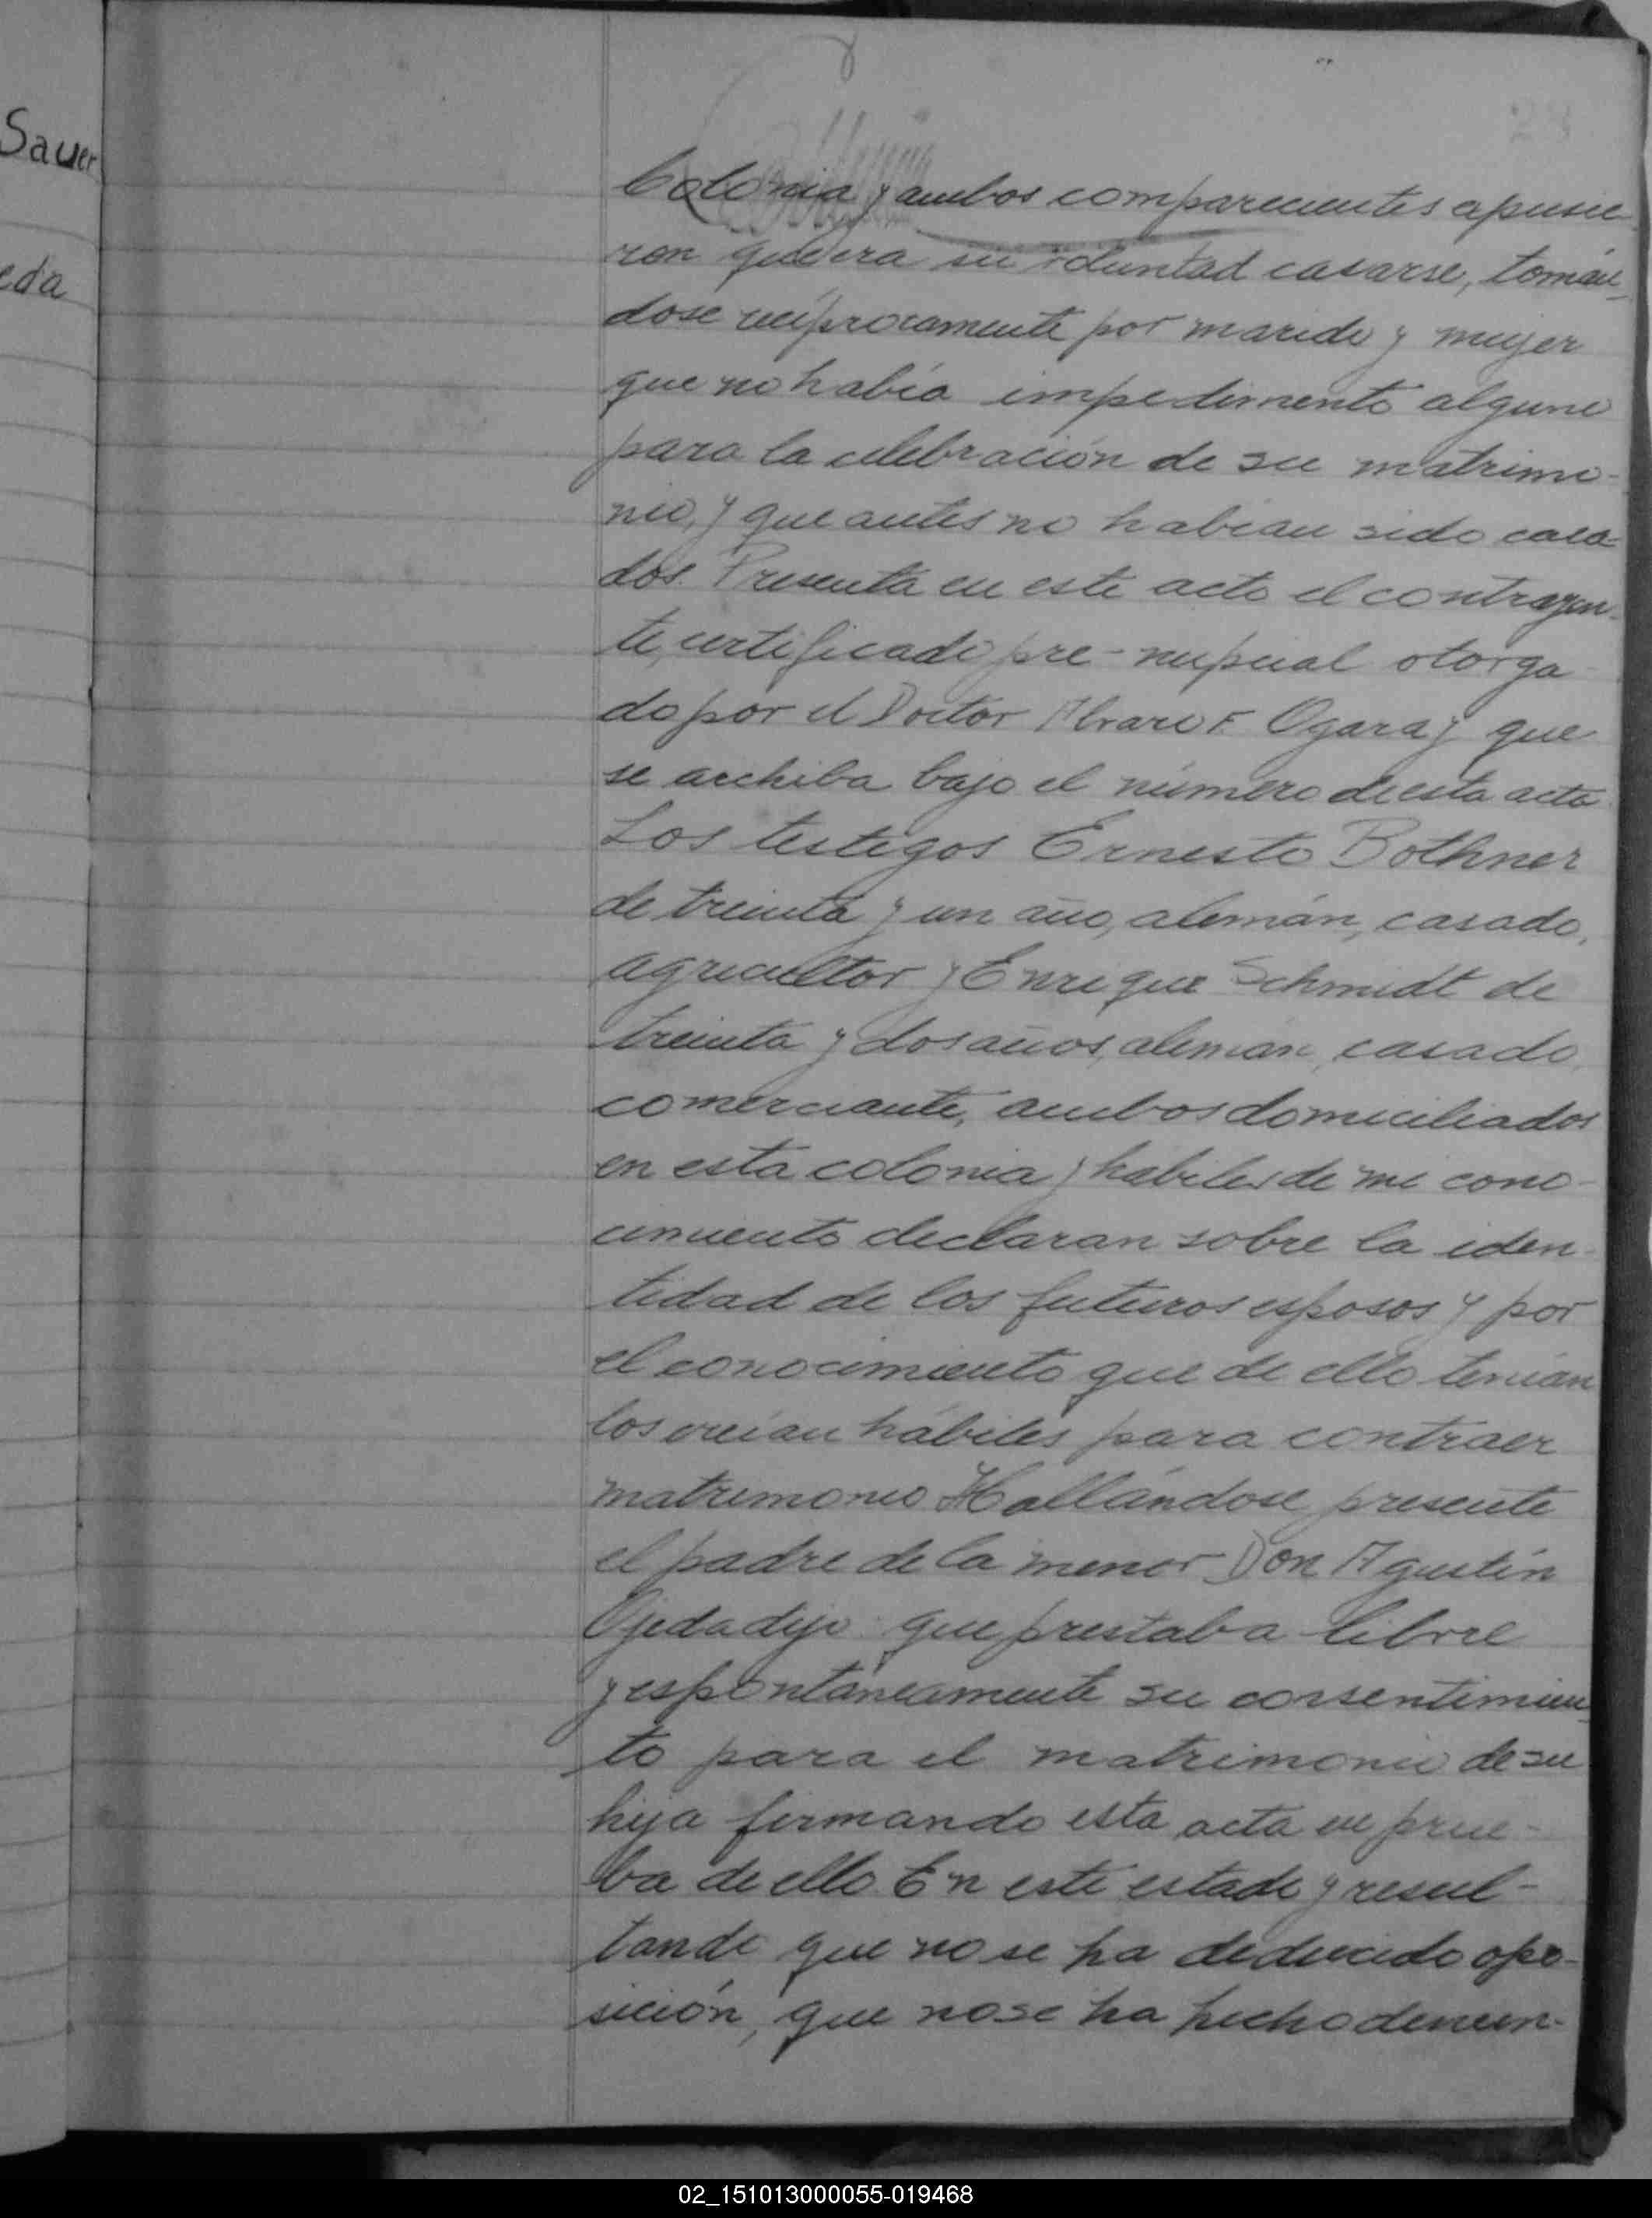 Sauer
eda
Colonia y ambos comparecientes apusie-
ron que era su voluntad casarse, tomán-
dose recíprocamente por marido y mujer
que no había impedimento alguno
para la celebración de su matrimo-
nio, y que antes no habían sido casa-
dos. Presenta en este acto el contrayen-
te, certificado pre-nupcial otorga-
do por el Doctor Alvaro F. Ogara y que
se archiba bajo el número de esta acta
Los testigos Ernesto Bothner
de treinta y un año, alemán, casado,
agricultor y Enrique Schmidt de
treinta y dos años, alemán, casado,
comerciante, ambos domiciliados
en esta colonia y habiles de mi cono-
cimiento declaran sobre la iden-
tidad de los futuros esposos y por
el conocimiento que de ello tenían
los creían hábiles para contraer
matrimonio Hallándose presente
el padre de la menor Don Agustín
Ojeda dijo que prestaba libre
y espontáneamente su consentimien-
to para el matrimonio de su
hija firmando esta acta en prue-
ba de ello. En este estado y resul-
tando que no se ha deducido opo-
sición, que no se ha hecho denun-
02_151013000055-019468